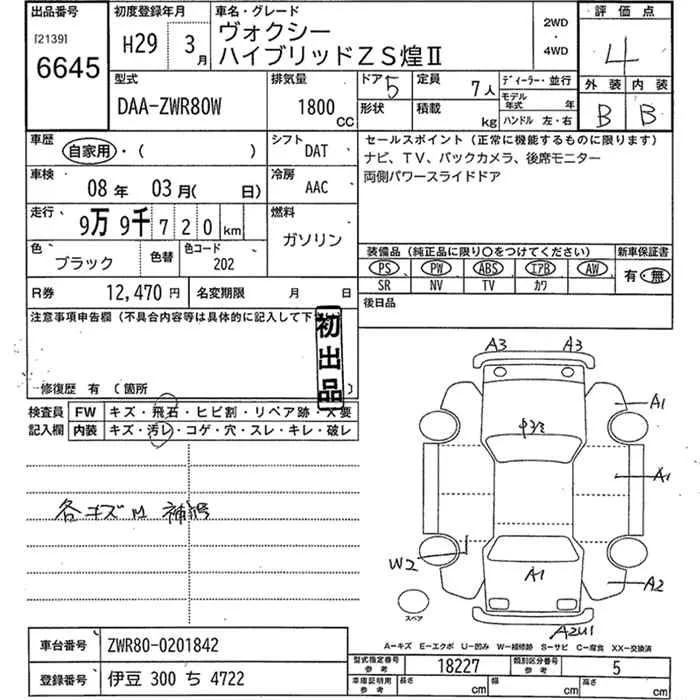 出品番号
[2139]
6645
初度登録年月
H29 3月
車名・グレード
ヴォクシー
ハイブリッドZS煌Ⅱ
2WD
・
4WD
評価点
4
外装 内装
B B
型式
DAA-ZWR80W
排気量
1800
CC
ドア 5
形状
定員 7人
積載 kg
ディーラー・並行
モデル年式 年
ハンドル 左・右
車歴
自家用・( )
シフト
DAT
車検
08年 03月( 日)
冷房
AAC
走行
9万9千720km
燃料
ガソリン
色
ブラック
色替
色コード
202
セールスポイント(正常に機能するものに限ります)
ナビ、TV、バックカメラ、後席モニター
両側パワースライドドア
装備品(純正品に限り○をつけてください)
PS PW ABS エアB AW
SR NV TV カワ
新車保証書
有・無
R券 12,470円
名変期限 月 日
後日品
注意事項申告欄(不具合内容等は具体的に記入して下
初出品
修復歴 有(箇所 )
検査員
記入欄
FW キズ・飛石・ヒビ割・リペア跡・X要
内装 キズ・汚レ・コゲ・穴・スレ・キレ・破レ
各キズM 補修
A3 A3
A1
A1
W2
A1
A2
A2U1
スペア
A-キズ E-エクボ U-凹み W-補修跡 S-サビ C-腐食 XX-交換済
車台番号 ZWR80-0201842
登録番号 伊豆 300 ち 4722
型式指定番号
参考
18227
類別区分番号
参考
5
車庫証明用
参考
長さ cm 幅 cm 高さ cm